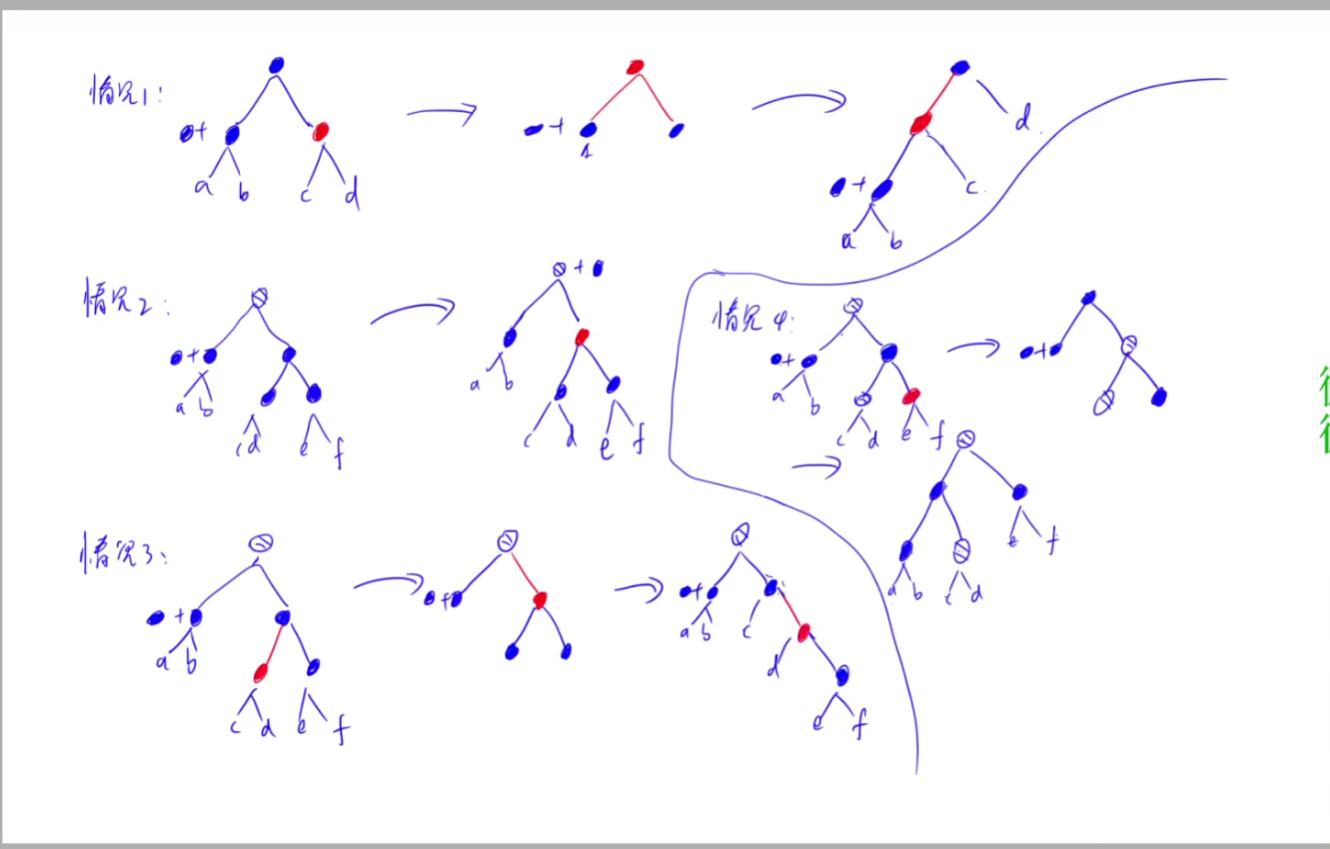 情况1:
+
a b c d
+
1
+
d
c
a b
情况2:
+
a b
c d e f
+
a b
c d e f
情况4:
+
a b
c d e f
+
e f
a b c d
情况3:
+
a b
c d e f
+
+
a b c
d
e f